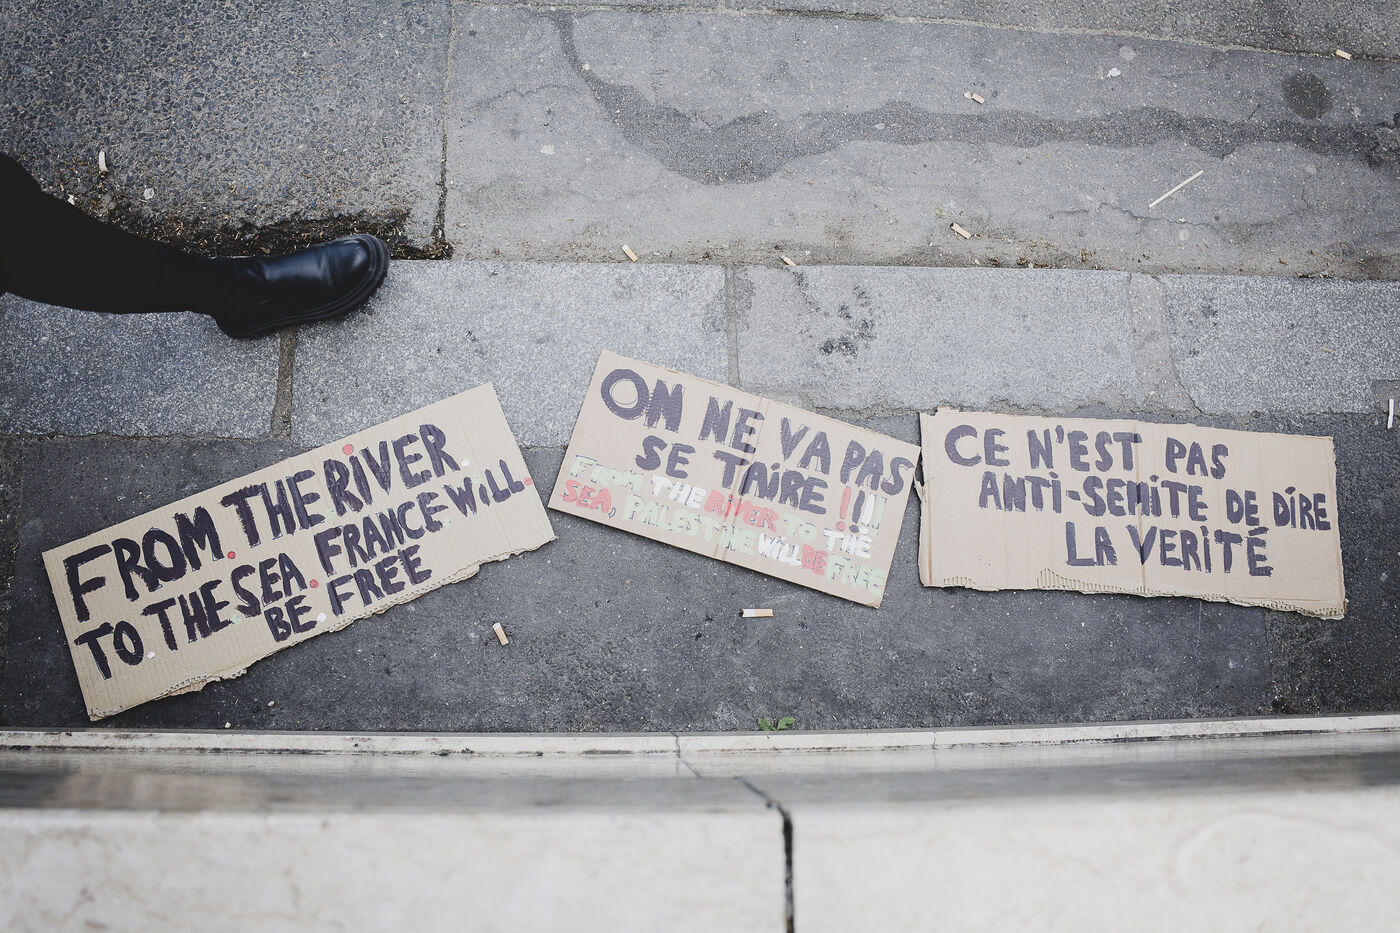 FROM THE RIVER
TO THE SEA. FRANCE WILL.
BE FREE
ON NE VA PAS
SE TAIRE !!!!
FROM THE RIVER TO THE
SEA, PALESTINE WILL BE FREE
CE N'EST PAS
ANTI-SEMITE DE DIRE
LA VERITÉ